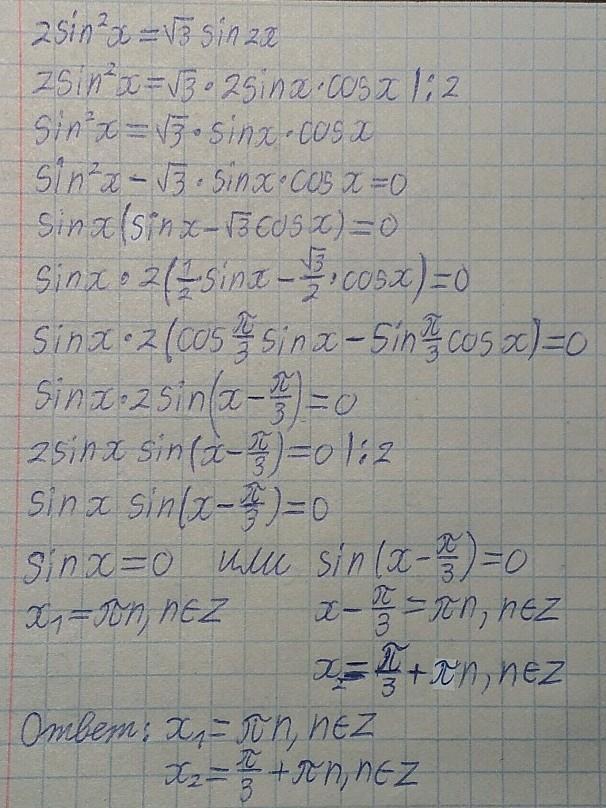 2sin²x=√3 sin2x
2sin²x=√3·2sinx·cosx |:2
sin²x=√3·sinx·cosx
sin²x-√3·sinx·cosx=0
sinx(sinx-√3cosx)=0
sinx·2(1/2·sinx-√3/2·cosx)=0
sinx·2(cos π/3 sinx-sin π/3 cosx)=0
sinx·2sin(x-π/3)=0
2sinx sin(x-π/3)=0 |:2
sinx sin(x-π/3)=0
sinx=0 или sin(x-π/3)=0
x₁=πn, n∈Z x-π/3=πn, n∈Z
x₂=π/3+πn, n∈Z
Ответ: x₁=πn, n∈Z
x₂=π/3+πn, n∈Z